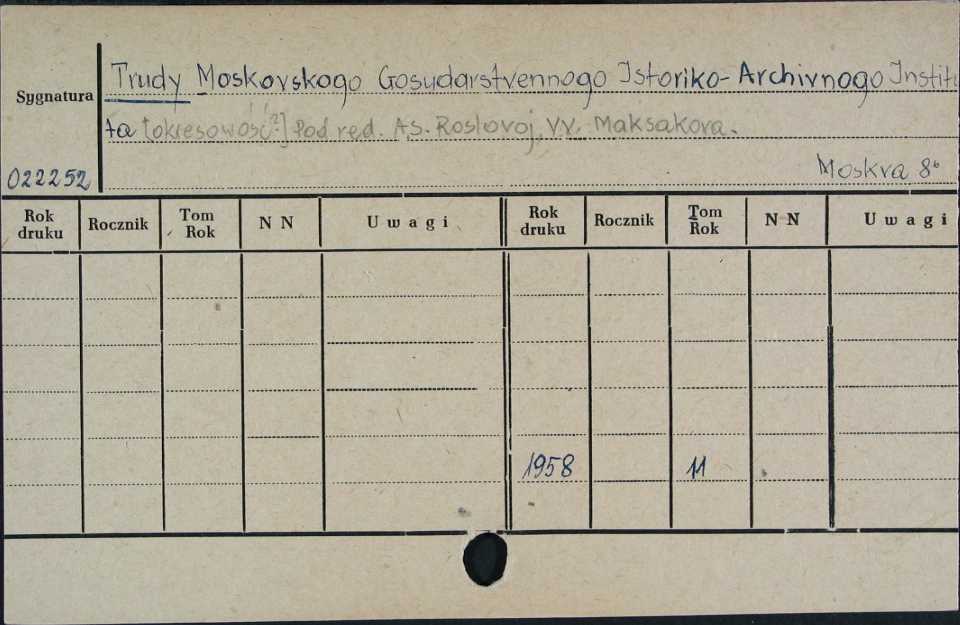 Sygnatura
Trudy Moskovskogo Gosudarstvennogo Istoriko-Archivnogo Institu
ta [okresowość?] Pod red. A.S. Roslovoj, V.V. Maksakova.
022252
Moskva 8°
Rok druku Rocznik Tom Rok N N Uwagi Rok druku Rocznik Tom Rok N N Uwagi
1958 11